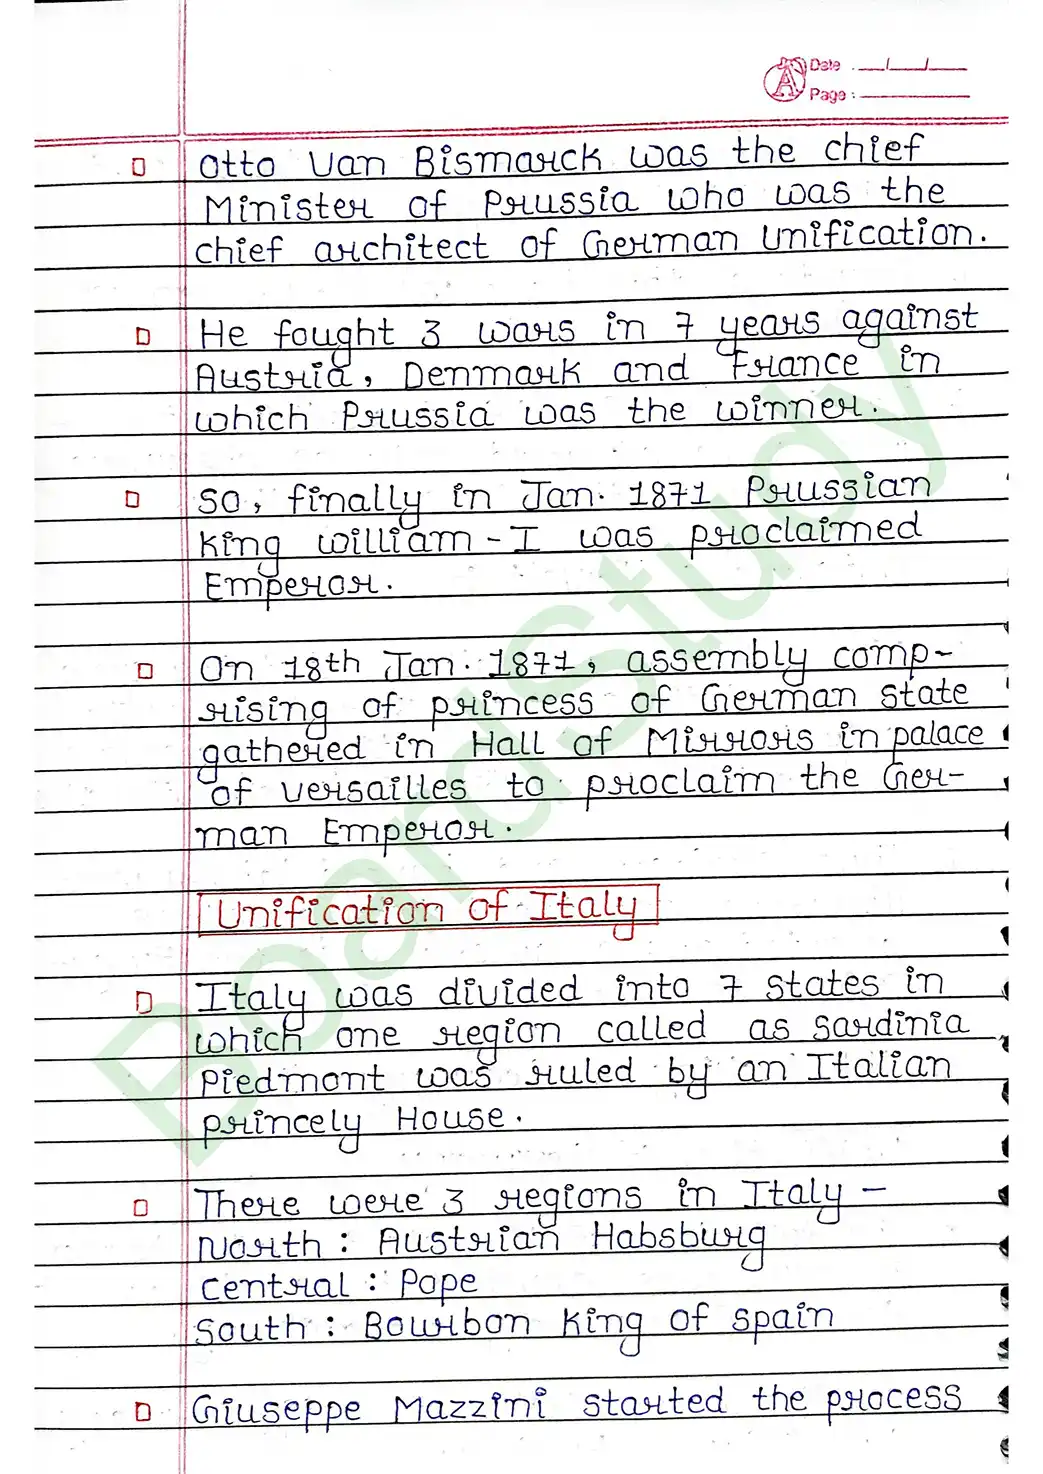 Date : __/__/__
Page : ______
Otto Van Bismarck was the chief
Minister of Prussia who was the
chief architect of German Unification.
He fought 3 wars in 7 years against
Austria, Denmark and France in
which Prussia was the winner.
So, finally in Jan. 1871 Prussian
King William - I was proclaimed
Emperor.
On 18th Jan. 1871, assembly comp-
rising of princess of German state
gathered in Hall of Mirrors in palace
of versailles to proclaim the Ger-
man Emperor.
Unification of Italy
Italy was divided into 7 states in
which one region called as Sardinia
Piedmont was ruled by an Italian
princely House.
There were 3 regions in Italy -
North : Austrian Habsburg
Central : Pope
South : Bourbon King of Spain
Giuseppe Mazzini started the process
BoardStudy